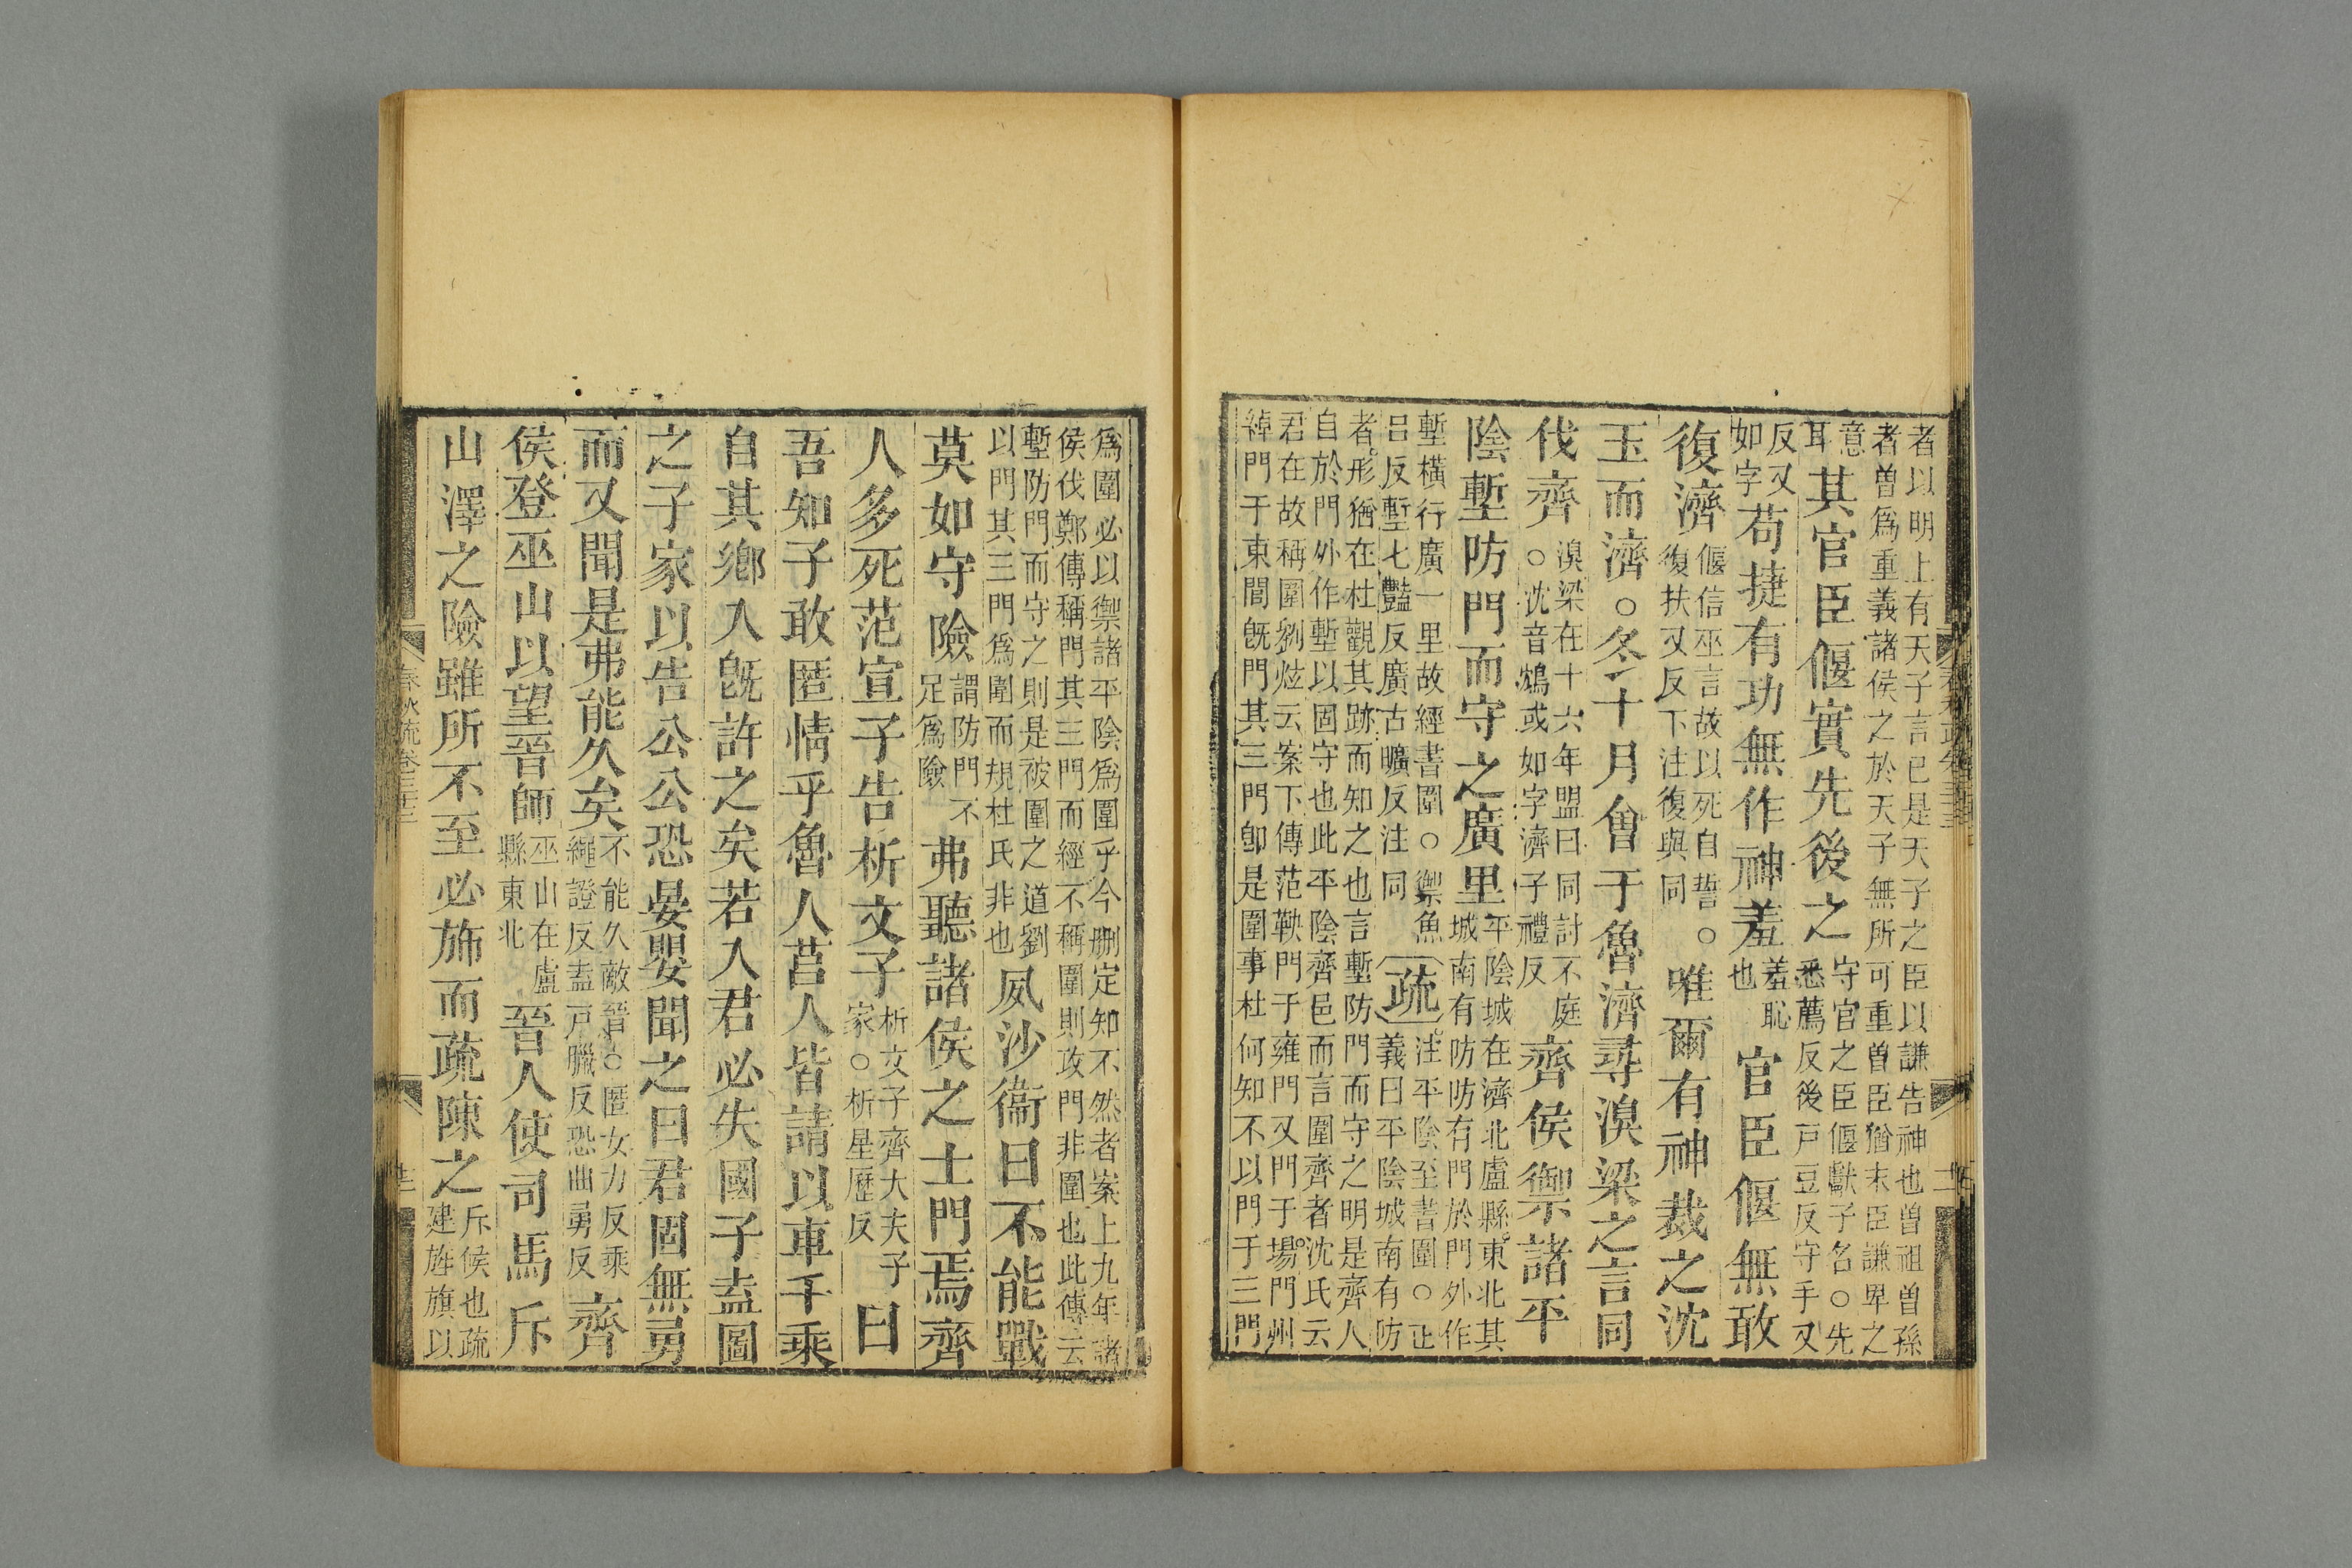 者以明上有天子言已是天子之臣以謙告神也曾祖曾孫
者曾爲重義諸侯之於天子無所可重曾臣猶末臣謙卑之
意耳其官臣偃實先後之守官之臣偃獻子名○先悉薦反後戸豆反守手又
反又如字苟捷有功無作神羞羞恥也官臣偃無敢
復濟偃信巫言故以死自誓○復扶又反下注復與同唯爾有神裁之沈
玉而濟○冬十月會于魯濟尋湨梁之言同
伐齊湨梁在十六年盟曰同討不庭○沈音鴆或如字濟子禮反齊侯禦諸平
陰塹防門而守之廣里平陰城在濟北盧縣東北其城南有防防有門於門外作
塹橫行廣一里故經書圍○禦魚呂反塹七豔反廣古曠反注同疏注平陰至書圍○正義曰平陰城南有防
者形猶在杜觀其跡而知之也言塹防門而守之明是齊人
自於門外作塹以固守也此平陰齊邑而言圍齊者沈氏云
君在故稱圍劉炫云案下傳范鞅門于雍門又門于場門州
綽門于東閭旣門其三門卽是圍事杜何知不以門于三門
爲圍必以禦諸平陰爲圍乎今刪定知不然者案上九年諸
侯伐鄭傳稱門其三門而經不稱圍則攻門非圍也此傳云
塹防門而守之則是被圍之道劉
以門其三門爲圍而規杜氏非也夙沙衞曰不能戰
莫如守險謂防門不足爲險弗聽諸侯之士門焉齊
人多死范宣子告析文子析文子齊大夫子家○析星歷反曰
吾知子敢匿情乎魯人莒人皆請以車千乘
自其鄉入旣許之矣若入君必失國子盍圖
之子家以告公公恐晏嬰聞之曰君固無勇
而又聞是弗能久矣不能久敵晉○匿女力反乘繩證反盍戸臘反恐曲勇反齊
侯登巫山以望晉師巫山在盧縣東北晉人使司馬斥
山澤之險雖所不至必斾而疏陳之斥候也疏建旌旗以